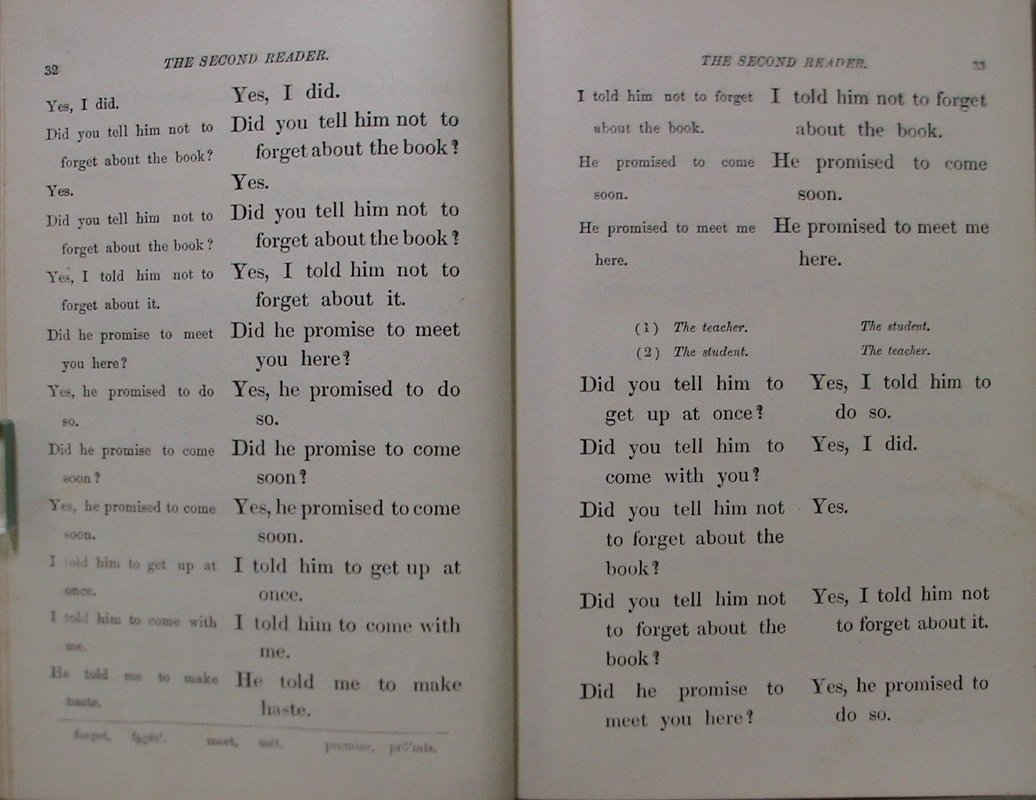 32
THE SECOND READER.
Yes, I did.
Did you tell him not to
forget about the book?
Yes.
Did you tell him not to
forget about the book?
Yes, I told him not to
forget about it.
Did he promise to meet
you here?
Yes, he promised to do
so.
Did he promise to come
soon?
Yes, he promised to come
soon.
I told him to get up at
once.
I told him to come with
me.
He told me to make
haste.
Yes, I did.
Did you tell him not to
forget about the book?
Yes.
Did you tell him not to
forget about the book?
Yes, I told him not to
forget about it.
Did he promise to meet
you here?
Yes, he promised to do
so.
Did he promise to come
soon?
Yes, he promised to come
soon.
I told him to get up at
once.
I told him to come with
me.
He told me to make
haste.
forget, meet, promise,
THE SECOND READER.
33
I told him not to forget
about the book.
He promised to come
soon.
He promised to meet me
here.
I told him not to forget
about the book.
He promised to come
soon.
He promised to meet me
here.
(1) The teacher. The student.
(2) The student. The teacher.
Did you tell him to
get up at once?
Yes, I told him to
do so.
Did you tell him to
come with you?
Yes, I did.
Did you tell him not
to forget about the
book?
Yes.
Did you tell him not
to forget about the
book?
Yes, I told him not
to forget about it.
Did he promise to
meet you here?
Yes, he promised to
do so.